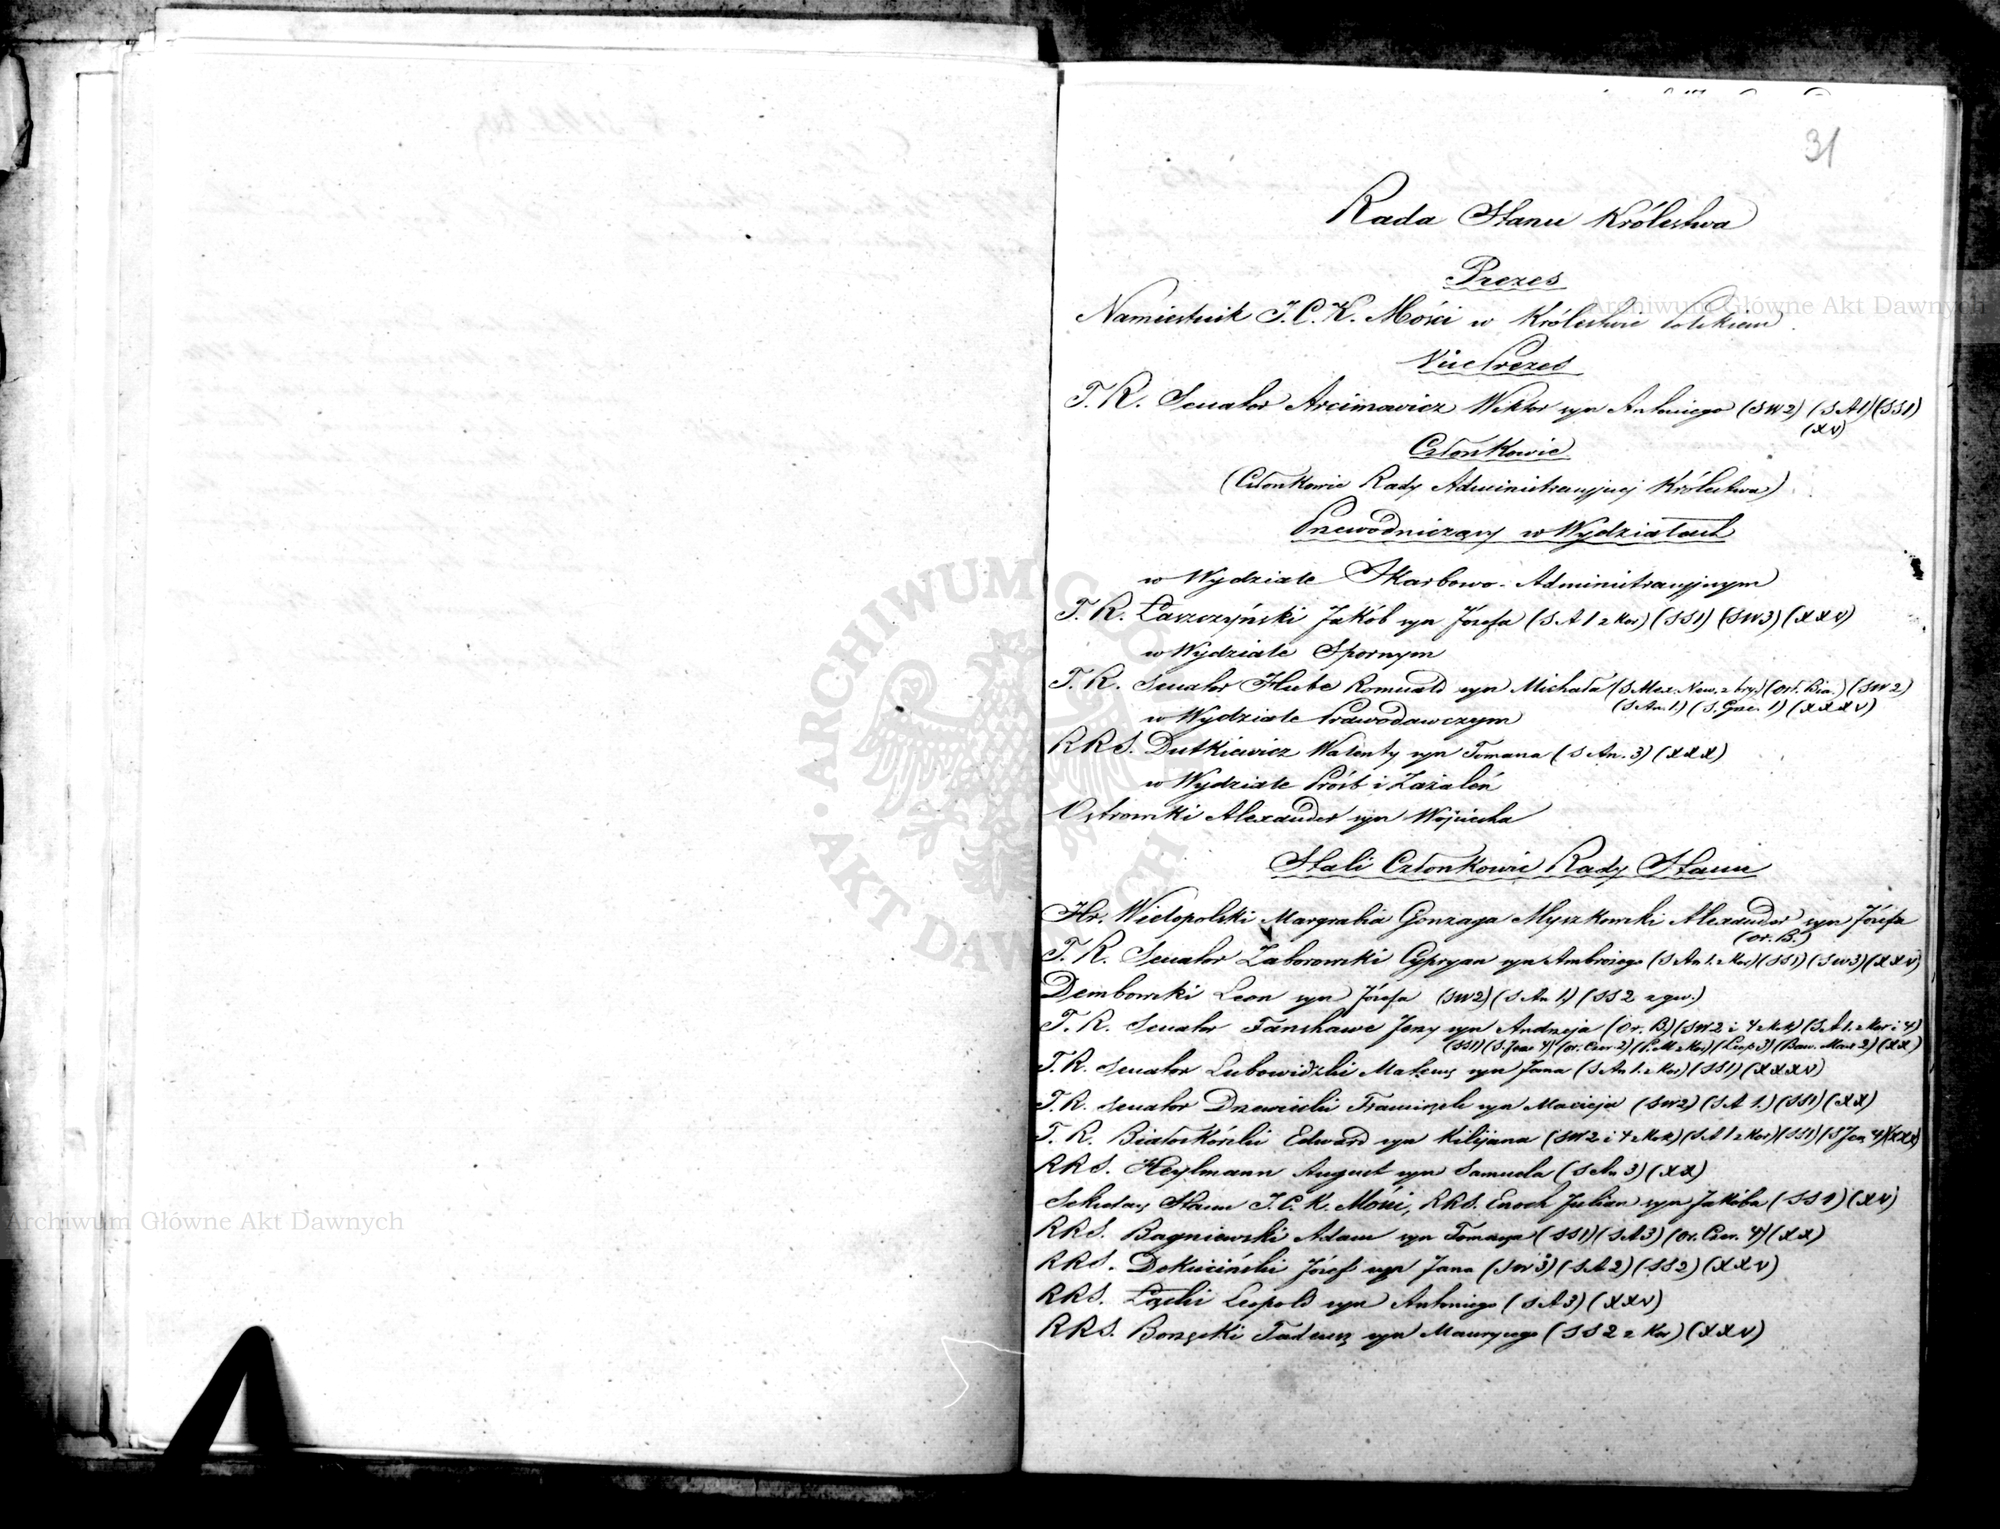 31
Rada Stanu Królestwa
Prezes
Namiestnik J. C. K. Mości w Królestwie Polskiem
Vice Prezes
T. R. Senator Arcimowicz Wiktor syn Antoniego (SW2) (SA1) (SS1)
(XV)
Członkowie
(Członkowie Rady Administracyjnej Królestwa)
Przewodniczący w Wydziałach
w Wydziale Skarbowo-Administracyjnym
T. R. Łaszczyński Jakób syn Józefa (SA1 z Kor) (SS1) (SW3) (XXV)
w Wydziale Spornym
T. R. Senator Hube Romuald syn Michała (S. Alex. New. z bry.) (Orł. Bia.) (SW2)
(S An. 1) (XXXV)
w Wydziale Prawodawczym
RRS. Dutkiewicz Walenty syn Tomasza (S An. 3) (XXX)
w Wydziale Próśb i Zażaleń
Ostrowski Alexander syn Wojciecha
Stali Członkowie Rady Stanu
Hr. Wielopolski Margrabia Gonzaga Myszkowski Alexander syn Józefa
(Or. B.)
T. R. Senator Zaborowski Cypryan syn Ambrożego (S An 1. z Kor) (SS1) (SW3) (XXV)
Dembowski Leon syn Józefa (SW2) (S An 1) (SS2 z gw.)
T. R. Senator Fanshawe Jerzy syn Andrzeja (Or. B.) (SW2 i 4 z Kok) (SA1. z Kor i 4)
(SS1) (S. Jer 4) (Or. Czer. 2) (P. M z Kor) (Leop 3) (Baw. Max 2) (XX)
T. R. Senator Lubowidzki Mateusz syn Jana (S An 1. z Kor) (SS1) (XXXV)
T. R. Senator Drzewiecki Franciszek syn Macieja (SW2) (SA 1.) (SS1) (XX)
T. R. Białoskórski Edward syn Kilijana (SW2 i 4 z Kok) (SA1 z Kor) (SS1) (S Jer 4) (XXX)
RRS. Heylmann August syn Samuela (S An 3) (XX)
Sekretarz Stanu J. C. K. Mości, RRS. Enoch Julian syn Jakóba (SS1) (XV)
RRS. Bagniewski Adam syn Tomasza (SS1) (SA3) (Or. Czer. 4) (XX)
RRS. Dekuciński Józef syn Jana (SW3) (SA2) (SS2) (XXV)
RRS. Łącki Leopold syn Antoniego (SA3) (XXV)
RRS. Borzęcki Tadeusz syn Maurycego (SS2 z Kor) (XXV)
Archiwum Główne Akt Dawnych
Archiwum Główne Akt Dawnych
ARCHIWUM GŁÓWNE AKT DAWNYCH